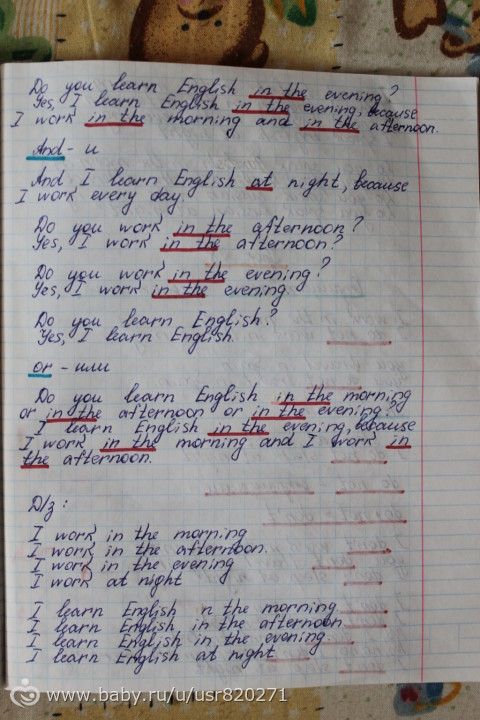 Do you learn English in the evening?
Yes, I learn English in the evening, because
I work in the morning and in the afternoon.
And - и
And I learn English at night, because
I work every day
Do you work in the afternoon?
Yes, I work in the afternoon?
Do you work in the evening?
Yes, I work in the evening.
Do you learn English?
Yes, I learn English.
or - или
Do you learn English in the morning
or in the afternoon or in the evening?
I learn English in the evening, because
I work in the morning and I work in
the afternoon.
D/z:
I work in the morning
I work in the afternoon.
I work in the evening
I work at night
I learn English n the morning
I learn English in the afternoon
I learn English in the evening
I learn English at night
www.baby.ru/u/usr820271